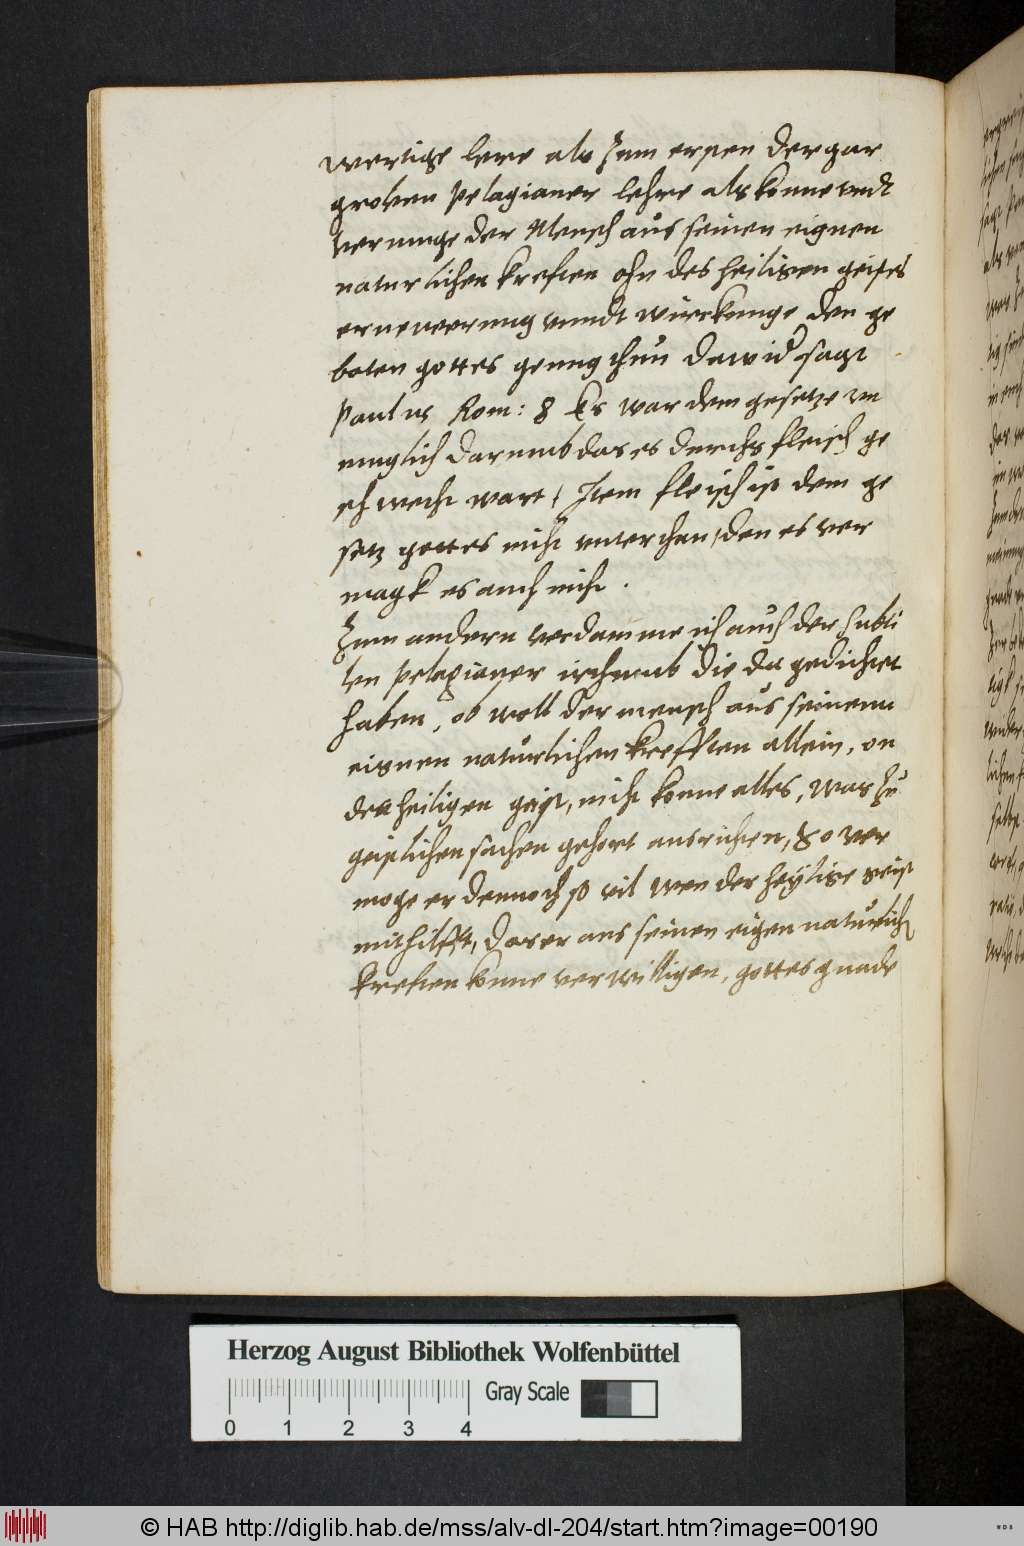 wertige lere als Zum ersten der gar
groben Pelagianer lehre als konne undt
vermuge der Mensch aus seinen eignen
naturlichen kreften ohn des heiligen geistes
erneweerung unndt wirckunge den ge
boten gottes genug thun Dawid sagt
Paulus Rom: 8 Es war dem gesetze un
muglich Darumb das es durchs fleisch ge
schwecht wart / Item fleisch ist dem ge
setz gottes nicht unterthan / den es ver
magk es auch nicht .
Zum andern verdamme ich auch der subti
len Pelagianer irthumb Die da gedichtet
haben, ob woll der mensch aus seinenn
eignen naturlichen krefften allein, on
den heiligen geist, nicht konne alles, was zu
geistlichen sachen gehort ausrichten, So ver
moge er dennoch so vil wen der heylige geist
mithilfft, Das er aus seinen eigen naturlich
kreften konne verwilligen, gottes gnade
Herzog August Bibliothek Wolfenbüttel
Gray Scale
0 1 2 3 4
© HAB http://diglib.hab.de/mss/alv-dl-204/start.htm?image=00190